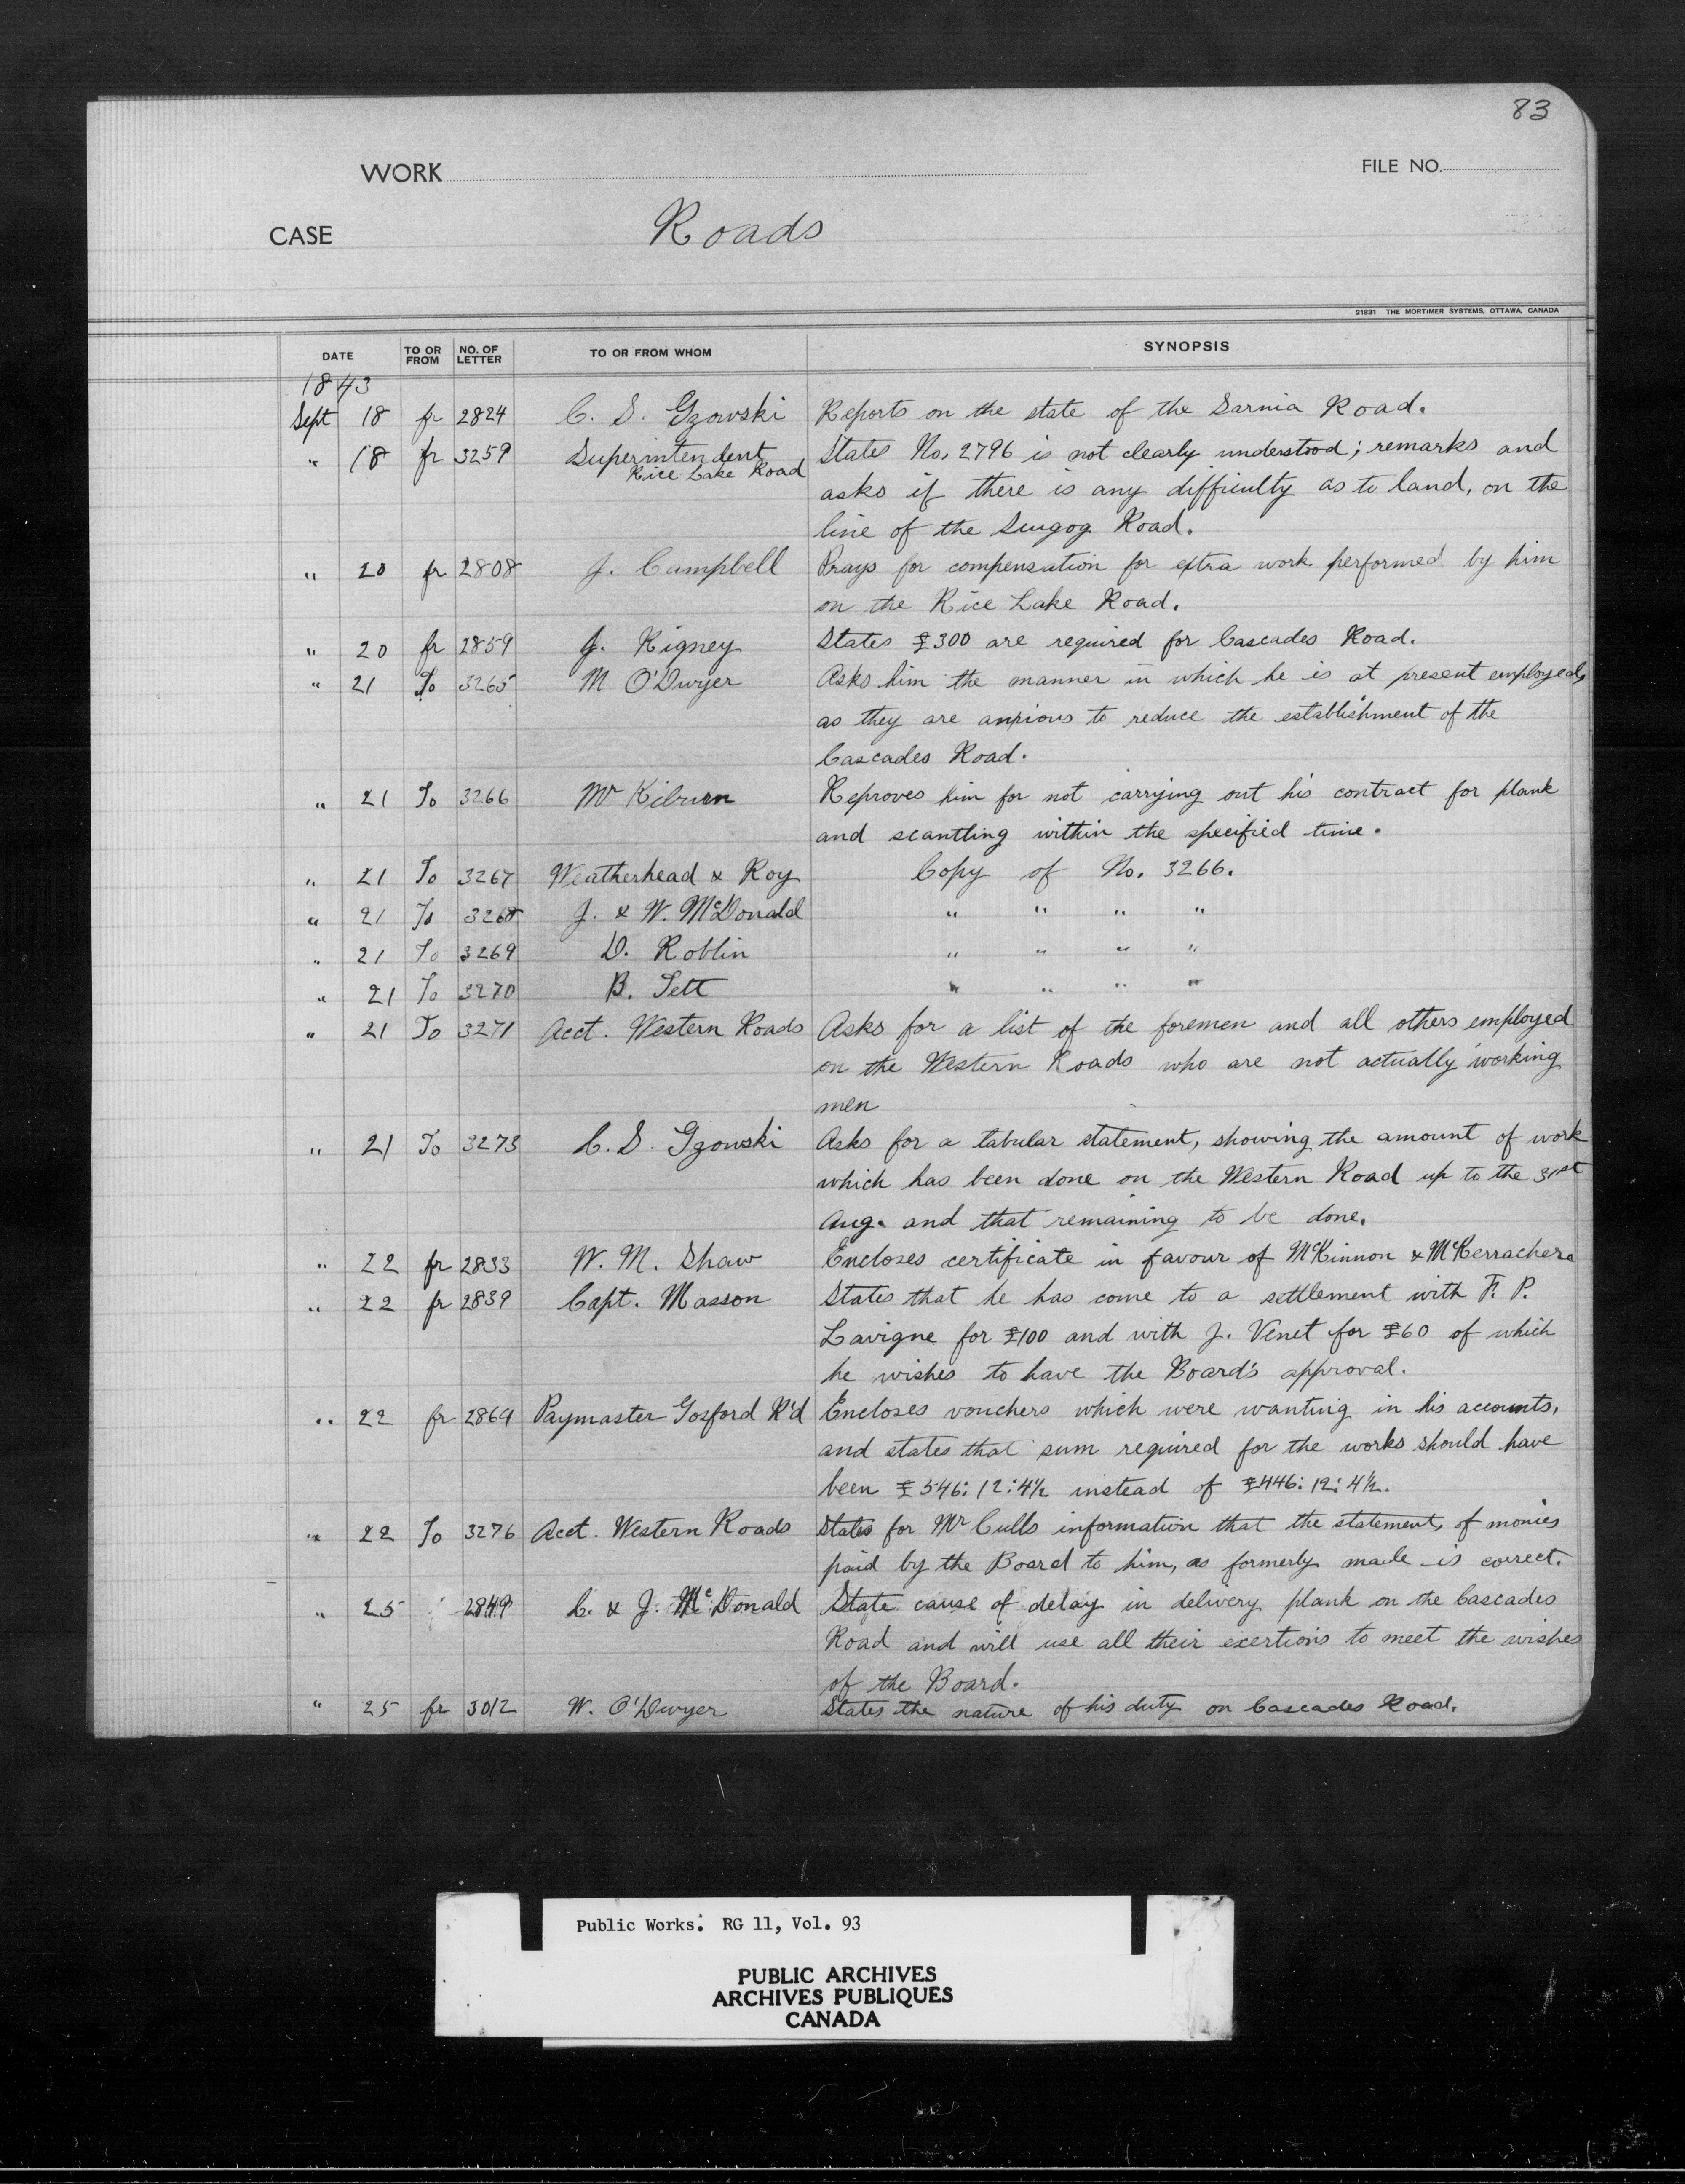 83
WORK
FILE NO.
CASE
Roads
21831 THE MORTIMER SYSTEMS, OTTAWA, CANADA
DATE TO OR FROM NO. OF LETTER TO OR FROM WHOM SYNOPSIS
1843
Sept 18 fr 2824 C. S. Gzowski Reports on the state of the Sarnia Road.
" 18 fr 3259 Superintendent Rice Lake Road States No. 2796 is not clearly understood; remarks and
asks if there is any difficulty as to land, on the
line of the Scugog Road.
" 20 fr 2808 J. Campbell Prays for compensation for extra work performed by him
on the Rice Lake Road.
" 20 fr 2859 J. Rigney States £300 are required for Cascades Road.
" 21 To 3265 M O'Dwyer Asks him the manner in which he is at present employed,
as they are anxious to reduce the establishment of the
Cascades Road.
" 21 To 3266 Mr Kilburn Reproves him for not carrying out his contract for plank
and scantling within the specified time.
" 21 To 3267 Weatherhead & Roy Copy of No. 3266.
" 21 To 3268 J. & W. McDonald " " " "
" 21 To 3269 D. Roblin " " " "
" 21 To 3270 B. Tett " " " "
" 21 To 3271 Acct. Western Roads Asks for a list of the foremen and all others employed
on the Western Roads who are not actually working
men
" 21 To 3273 C. S. Gzowski Asks for a tabular statement, showing the amount of work
which has been done on the Western Road up to the 31st
Aug. and that remaining to be done.
" 22 fr 2833 W. M. Shaw Encloses certificate in favour of McKinnon & McKerrachers
" 22 fr 2839 Capt. Masson States that he has come to a settlement with F. P.
Lavigne for £100 and with J. Venet for £60 of which
he wishes to have the Board's approval.
" 22 fr 2869 Paymaster Gosford R'd Encloses vouchers which were wanting in his accounts,
and states that sum required for the works should have
been £546:12:4½ instead of £446:12:4½.
" 22 To 3276 Acct. Western Roads States for Mr Culls information that the statement, of monies
paid by the Board to him, as formerly made is correct.
" 25 2849 C. & J. McDonald State cause of delay in delivery plank on the Cascades
Road and will use all their exertions to meet the wishes
of the Board.
" 25 fr 3012 W. O'Dwyer States the nature of his duty on Cascades Road.
Public Works. RG 11, Vol. 93
PUBLIC ARCHIVES
ARCHIVES PUBLIQUES
CANADA